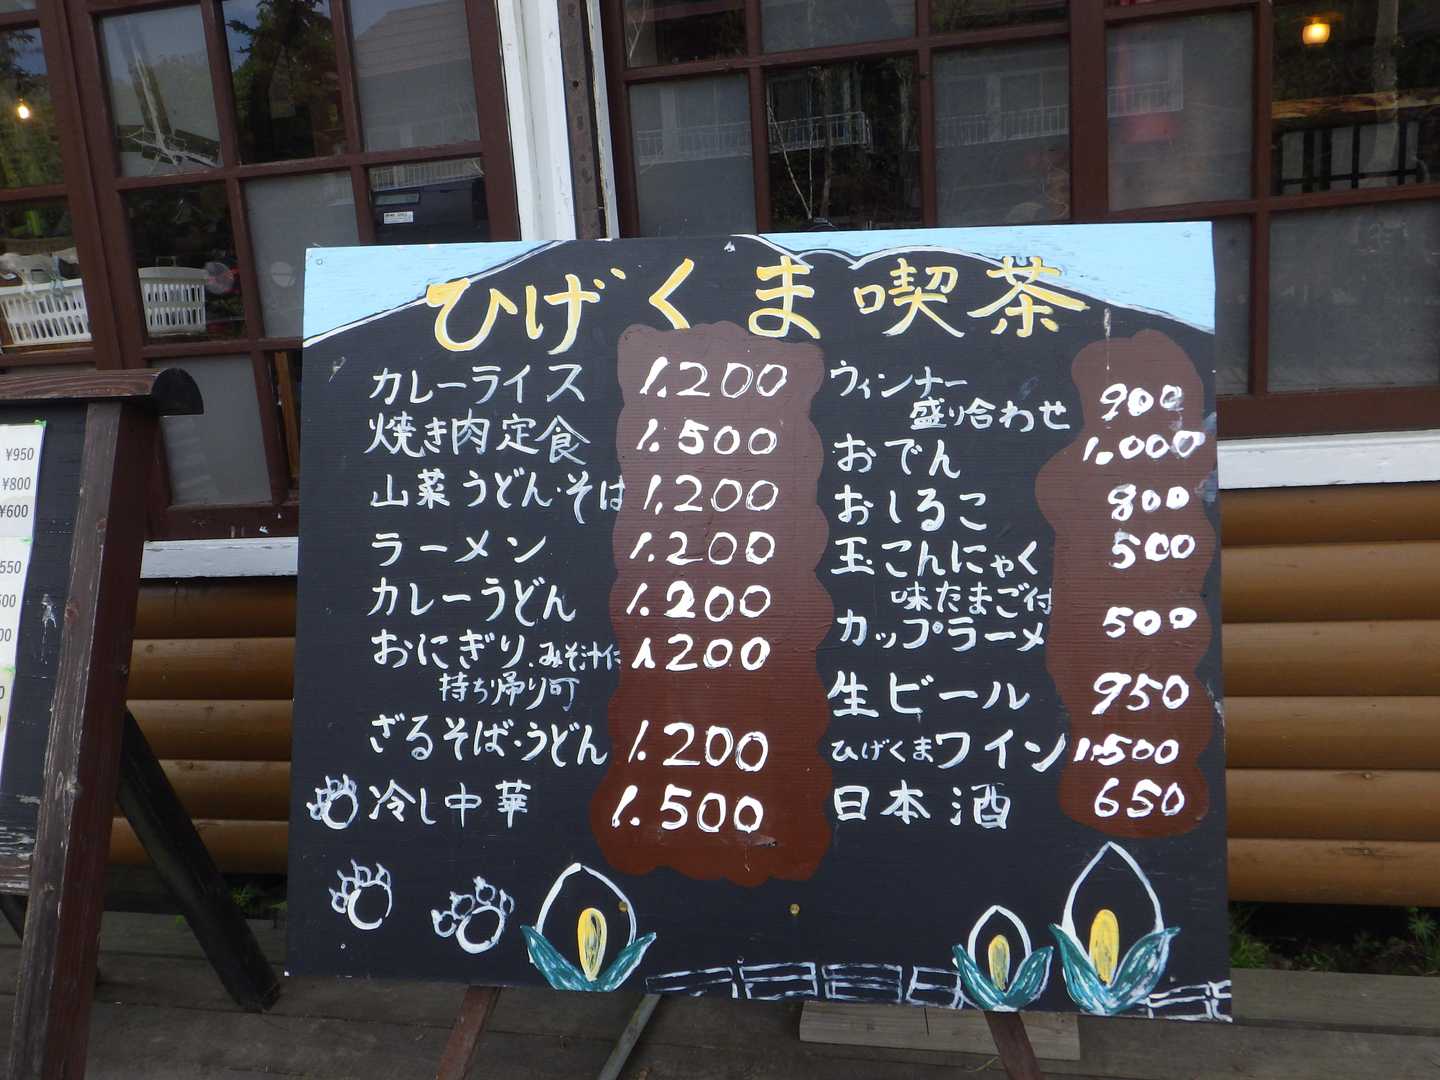 ひげくま喫茶
カレーライス 1.200
焼き肉定食 1.500
山菜うどん・そば 1.200
ラーメン 1.200
カレーうどん 1.200
おにぎり.みそ汁付 1.200
持ち帰り可
ざるそば・うどん 1.200
冷し中華 1.500
ウィンナー
盛り合わせ 900
おでん 1.000
おしるこ 800
玉こんにゃく 500
味たまご付
カップラーメン 500
生ビール 950
ひげくまワイン 1.500
日本酒 650
¥950
¥800
¥600
550